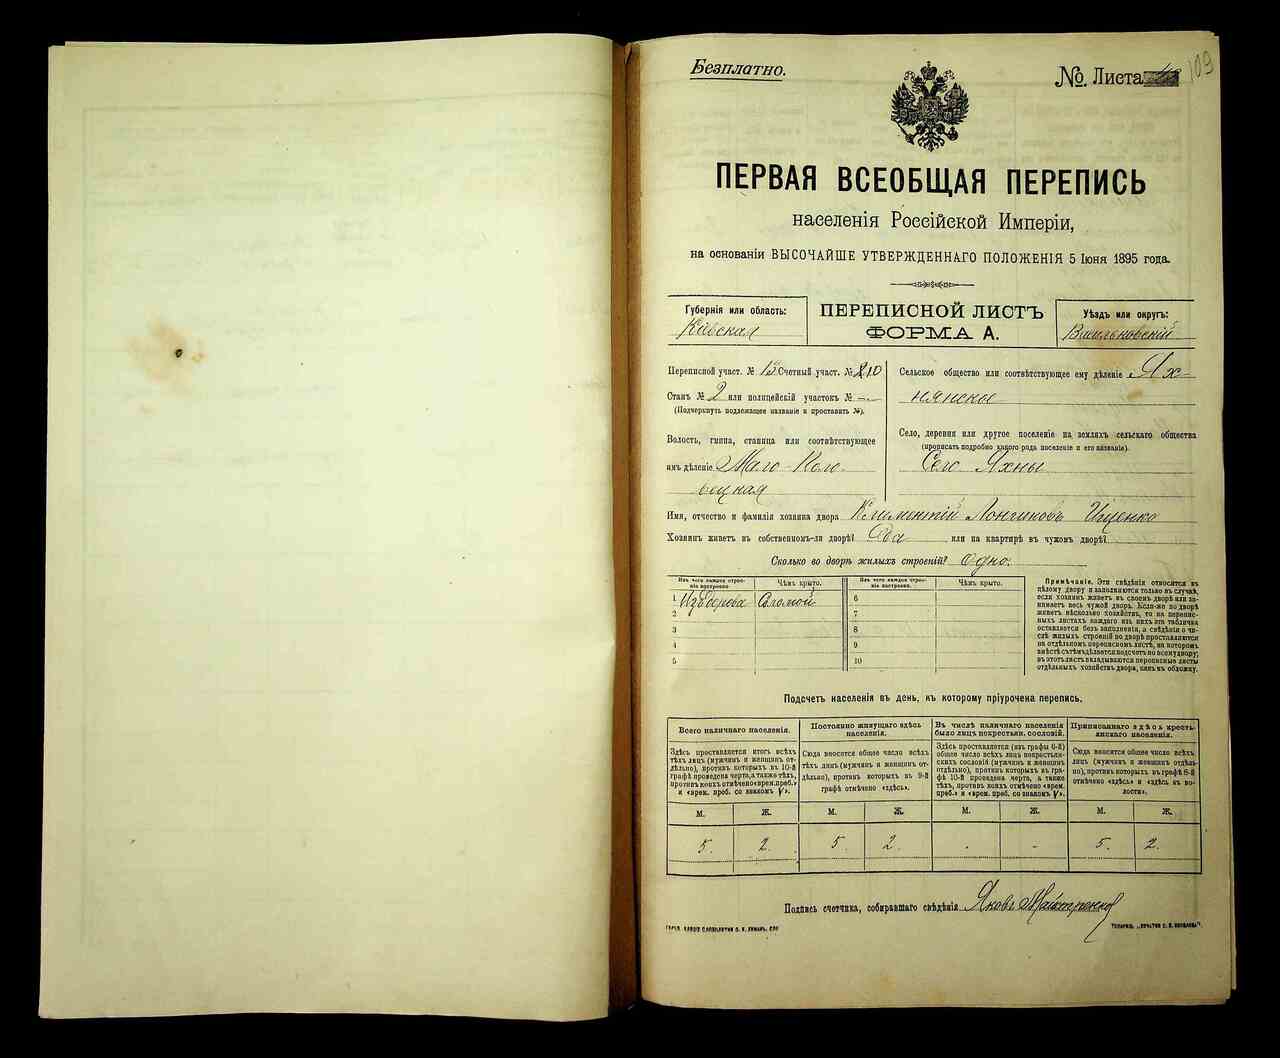 Безплатно.
№ Листа
109
ПЕРВАЯ ВСЕОБЩАЯ ПЕРЕПИСЬ
населенія Россійской Имперіи,
на основаніи ВЫСОЧАЙШЕ УТВЕРЖДЕННАГО ПОЛОЖЕНІЯ 5 Іюня 1895 года.
Губернія или область:
Кіевская
ПЕРЕПИСНОЙ ЛИСТЪ
ФОРМА А.
Уѣздъ или округъ:
Васильковскій
Переписной участ. № 13 Счетный участ. № 10
Станъ № 2 или полицейскій участокъ № —
(Подчеркнуть подлежащее названіе и проставить №).
Волость, гмина, станица или соотвѣтствующее
имъ дѣленіе Мало-Поло-
вецкая
Сельское общество или соотвѣтствующее ему дѣленіе Ях-
нянское
Село, деревня или другое поселеніе на земляхъ сельскаго общества
(прописать подробно какого рода поселеніе и его названіе).
Село Яхны
Имя, отчество и фамилія хозяина двора Климентій Лонгиновъ Ищенко
Хозяинъ живетъ въ собственномъ-ли дворѣ? Да или на квартирѣ въ чужомъ дворѣ?
Сколько во дворѣ жилыхъ строеній? Одно.
Изъ чего каждое строе-
ніе построено.
Чѣмъ крыто.
Изъ чего каждое строе-
ніе построено.
Чѣмъ крыто.
1 Изъ дерева Соломой
2
3
4
5
6
7
8
9
10
Примѣчаніе. Эти свѣдѣнія относятся къ
цѣлому двору и заполняются только въ случаѣ,
если хозяинъ живетъ въ своемъ дворѣ или за-
нимаетъ весь чужой дворъ. Если-же во дворѣ
живетъ нѣсколько хозяйствъ, то на перепис-
ныхъ листахъ каждаго изъ нихъ эта табличка
оставляется безъ заполненія, а свѣдѣнія о чи-
слѣ жилыхъ строеній во дворѣ проставляются
на отдѣльномъ переписномъ листѣ, на которомъ
вмѣстѣ съ тѣмъ дѣлается подсчетъ по всему двору;
въ этотъ листъ вкладываются переписные листы
отдѣльныхъ хозяйствъ двора, какъ въ обложку.
Подсчетъ населенія въ день, къ которому пріурочена перепись.
Всего наличнаго населенія.
Здѣсь проставляется итогъ всѣхъ
тѣхъ лицъ (мужчинъ и женщинъ от-
дѣльно), противъ которыхъ въ 10-й
графѣ проведена черта, а также тѣхъ,
противъ коихъ отмѣчено «врем. преб.»
и «врем. преб. со знакомъ V».
Постоянно живущаго здѣсь
населенія.
Сюда вносится общее число всѣхъ
тѣхъ лицъ (мужчинъ и женщинъ от-
дѣльно), противъ которыхъ въ 9-й
графѣ отмѣчено «здѣсь».
Въ числѣ наличнаго населенія
было лицъ некрестьян. сословій.
Здѣсь проставляется (изъ графы 6-й)
общее число всѣхъ лицъ некрестьян-
скихъ сословій (мужчинъ и женщинъ
отдѣльно), противъ которыхъ въ гра-
фѣ 10-й проведена черта, а также
тѣхъ, противъ коихъ отмѣчено «врем.
преб.» и «врем. преб. со знакомъ V».
Приписаннаго здѣсь кресть-
янскаго населенія.
Сюда вносится общее число всѣхъ
лицъ (мужчинъ и женщинъ отдѣль-
но), противъ которыхъ въ графѣ 8-й
отмѣчено «здѣсь» и «здѣсь въ во-
лости».
М. Ж. М. Ж. М. Ж. М. Ж.
5. 2. 5. 2. . - 5. 2.
Подпись счетчика, собиравшаго свѣдѣнія Яковъ